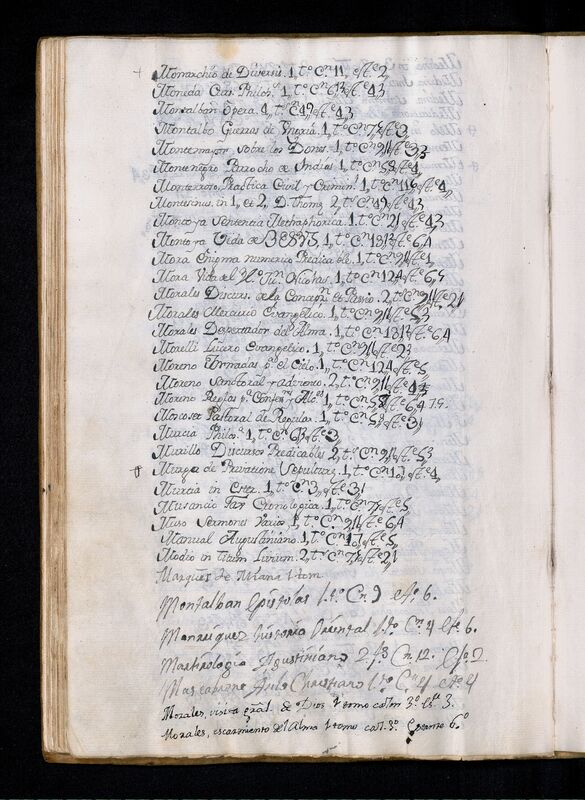 Monarchio de Diversis. 1,, tº Cn 11,, este 2,,
Moneda Curs. Philos. 1,, tº Cn 63 este 43
Montalban Opera. 4,, tos Cn 49 este 43
Montalbo Guerras de Ungria. 1,, tº Cn 75 este 3,,
Montemayor, sobre los Dones. 1,, tº Cn 911 este 33
Montenegro Parrocho de Indias. 1,, tº Cn 58 este 4,,
Monterroso, Practica Civil y Crimin.l 1,, tº Cn 116 este 4,,
Montesinus in 1,, et 2,, D. Thomę 2,, tº Cn 49 este 43
Montoya sentencia Methaphorica. 1,, tº Cn 21 este 43
Montoya Vida de 1,, tº este 6,4
Mora Enigma numerico Predicable. 1,, tº Cn 911 este 1,,
Mora Vida del Nicolas. 1,, tº Cn 124 este 6,5
Morales Discurs. de la Concepn. 2,, tº Cn 911 este 21
Morales Mercurio Evangelico. 1,, tº Cn 911 este 53
Morales Despertador del Alma. 1,, tº este 6,4
Morelli Lucero Evangelico. 1,, tº Cn 911 este 23
Moreno Jornadas pª el Cielo. 1,, tº Cn 124 este 5,,
Moreno Santoral y Adviento. 2,, tº Cn 911 este 43
Moreno Reglas 1,, tº Cn 58 este 6,4
Moscoso Pastoral de Reguлar. 1,, tº Cn 58 este 31
Murcia Philos.ª 1,, tº Cn 63 este 3,,
Murillo Discursos Predicables. 2,, tº Cn 911 este 53
Murga de Privatione Sepulturę. 1,, tº Cn 17,, este 4,,
Murcia in Ester. 1,, tº Cn 3,, este 31
Musancio Fax Cronologica. 1,, tº Cn 75 este 5,,
Muso Sermones Varios. 1,, tº Cn 911 este 6,4
Manual Augustiniano. 1,, tº Cn 107 este 5,,
Modio in Titum Livium. 2,, tos Cn 75 este 21
Marques de Miana 1 tom.
Montalban Epistolas 1. tº Cn 9 este 6.
Manrriquez historia Oriental 1. tº Cn 4 este 6.
Martirologio Agustiniano 2. Cn 12. este 2
Mascareñas Christiano 1. tº Cn 4 este 4
Morales, visita gral. de Dios 1 tomo cajon 3º 3.
Morales, escarmiento del Alma 1 tomo caj. 3º Estante 6º